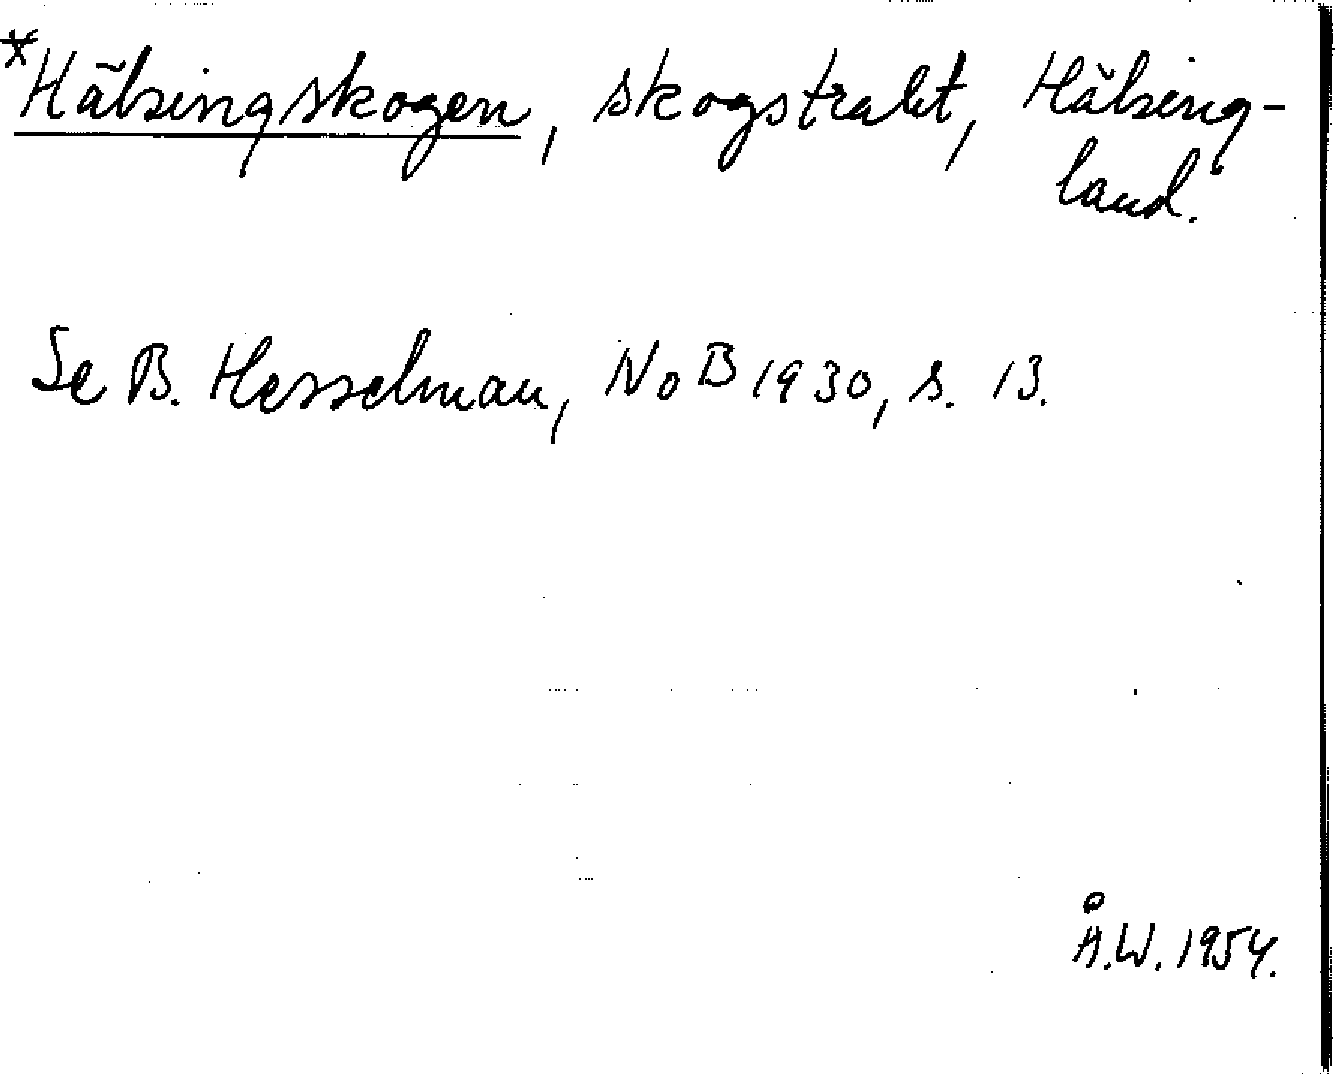 *Hälsingskogen, skogstrakt, Hälsing-
land.
Se B. Hesselman, NoB 1930, s. 13.
Å.W. 1954.